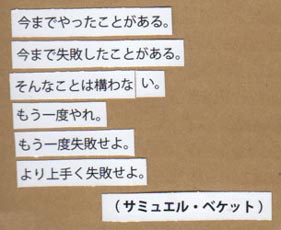 今までやったことがある。
今まで失敗したことがある。
そんなことは構わない。
もう一度やれ。
もう一度失敗せよ。
より上手く失敗せよ。
（サミュエル・ベケット）